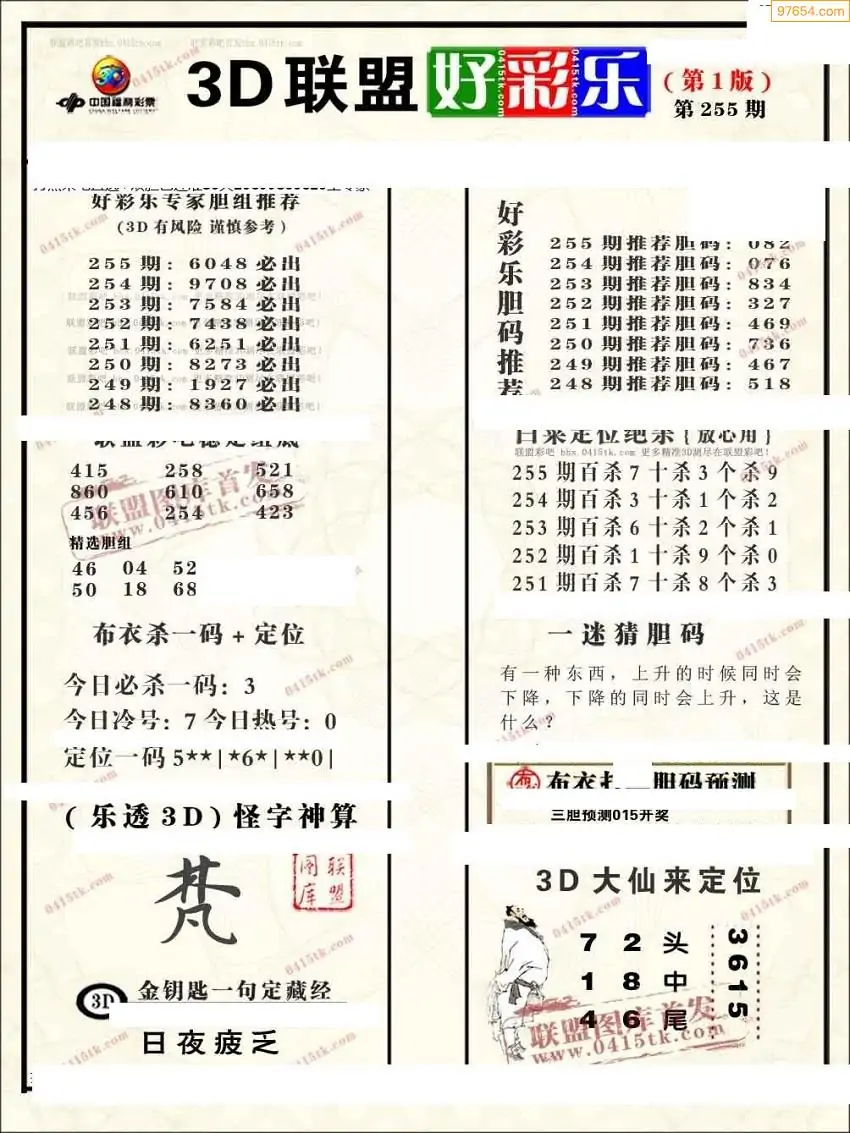 97654.com
联盟彩吧首发bbx.0415tk.com
中国福利彩票
CHINA WELFARE LOTTERY
3D联盟好彩乐
0415tk.com
(第1版)
第255期
好彩乐专家胆组推荐
(3D有风险 谨慎参考)
255期: 6048必出
254期: 9708必出
253期: 7584必出
252期: 7438必出
251期: 6251必出
250期: 8273必出
249期: 1927必出
248期: 8360必出
415 258 521
860 610 658
456 254 423
精选胆组
46 04 52
50 18 68
布衣杀一码+定位
今日必杀一码: 3
今日冷号: 7 今日热号: 0
定位一码5**|*6*|**0|
(乐透3D)怪字神算
梵
联盟图库
3D 金钥匙一句定藏经
日夜疲乏
好彩乐胆码推荐
255期推荐胆码: 082
254期推荐胆码: 076
253期推荐胆码: 834
252期推荐胆码: 327
251期推荐胆码: 469
250期推荐胆码: 736
249期推荐胆码: 467
248期推荐胆码: 518
白菜定位绝杀{放心用}
联盟彩吧 bbx.0415tk.com 更多精准3D测尽在联盟彩吧!
255期百杀7十杀3个杀9
254期百杀3十杀1个杀2
253期百杀6十杀2个杀1
252期百杀1十杀9个杀0
251期百杀7十杀8个杀3
一迷猜胆码
有一种东西，上升的时候同时会
下降，下降的同时会上升，这是
什么？
胆码预测
三胆预测015开奖
3D大仙来定位
7 2 头
1 8 中
4 6 尾
3615
联盟图库首发
www.0415tk.com